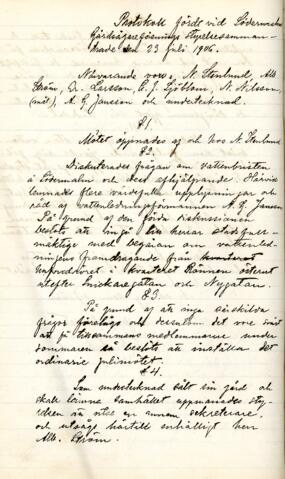 Protokoll fördt vid Södermalms
Gårdsägareförenings Styrelsesamman-
träde den 23 Juli 1906.
Närvarande voro, N. Stenlund, Alb.
Ström, A. Larsson, C. J. Sjöblom, N. Nilsson
A. G. Jansson och undertecknad.
§1.
Mötet öppnades af och hos N. Stenlund
§2.
Diskuterades frågan om vattenbristen
å Södermalm och dess afhjälpande. Härvid
lemnades flere värdefulla upplysningar och
råd af vattenledningsförmannen A. G. Jansson
På grund af den förda diskussionen
beslöts att ingå till herrar stadsfull-
mäktige med begäran om vattenled-
ningens framdragande från
hufvudröret i kvarteret Rännen österut
utefter Snickaregatan och Nygatan.
§3.
På grund af att inga särskilda
frågor föreligga och dessutom det vore svårt
att få tillsammans medlemmarne under
sommaren så beslöts att inställa det
ordinarie julimötet.
§4.
Som undertecknad sålt sin gård och
skall lämna samhället uppmanades sty-
relsen att utse en annan sekreterare,
och utsågs härtill enhälligt herr
Alb. Ström.